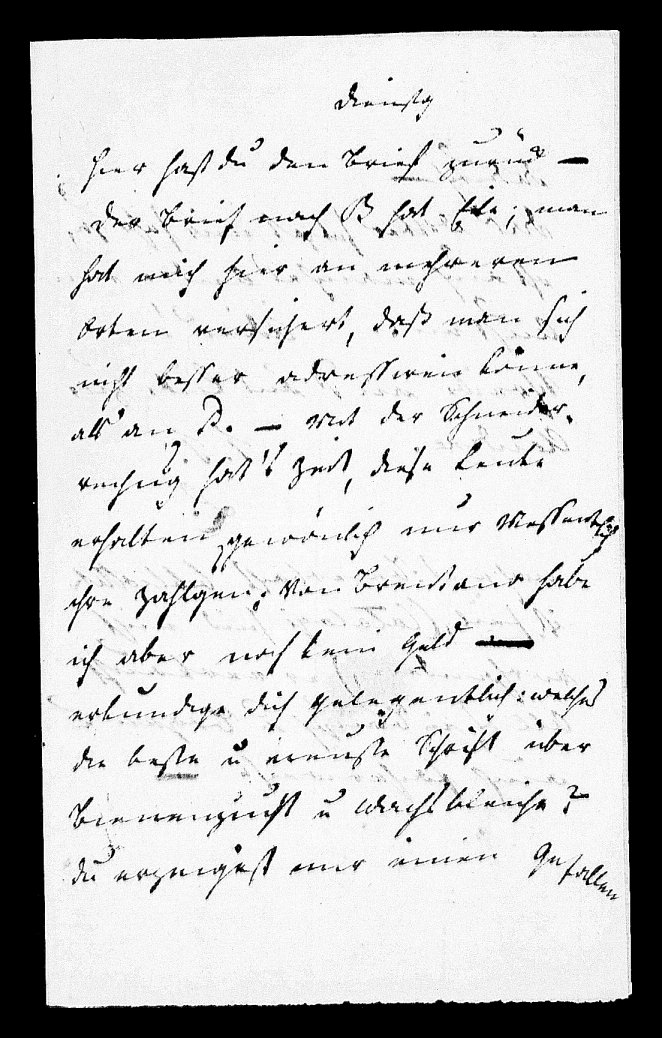 Dienstg
hier hast du den Brief zurück —
der Brief nach B hat Eile; man
hat mich hier an mehreren
Orten versichert, daß man sich
nicht besser adressiren könne,
als an D. — Mit der Schneider-
rechnug hat's Zeit, diese Leute
erhalten gewönlich nur Messentlich
ihre Zahlgen; Von Brentano habe
ich aber noch kein Geld —
erkundige dich gelegentlich: welches
die beste u neuste Schrift über
Bienenzucht u Wachsbleiche?
du erzeigest mir einen Gefallen